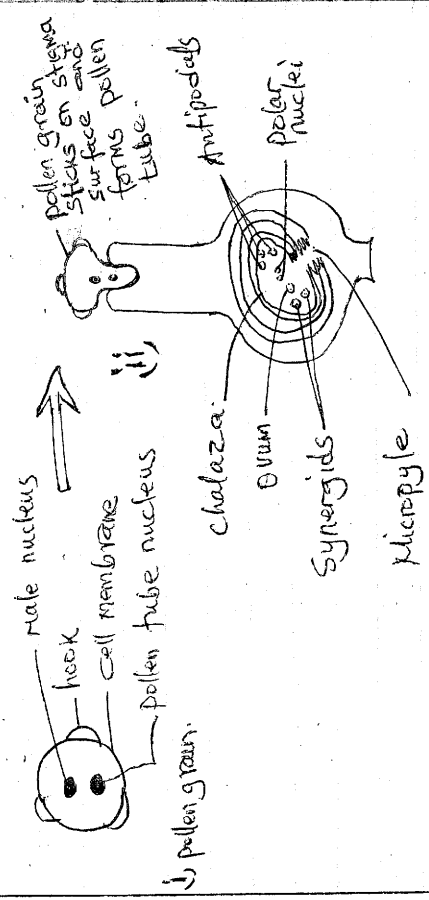 Male nucleus
hook
cell membrane
pollen tube nucleus
i) pollen grain.
ii)
pollen grain
sticks on stigma
surface and
forms pollen
tube.
Antipodals
polar
nuclei
chalaza.
ovum
Synergids
Micropyle